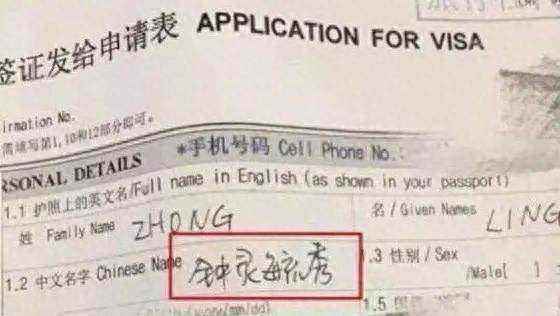 签证发给申请表 APPLICATION FOR VISA
irmation No.
需填写第1,10和12部分即可。
*手机号码 Cell Phone No.:
RSONAL DETAILS
1.1 护照上的英文名/Full name in English (as shown in your passport)
姓 Family Name ZHONG 名 / Given Names LING
1.2 中文名字 Chinese Name 钟灵毓秀 1.3 性别 / Sex
/Male[ ]
1.5